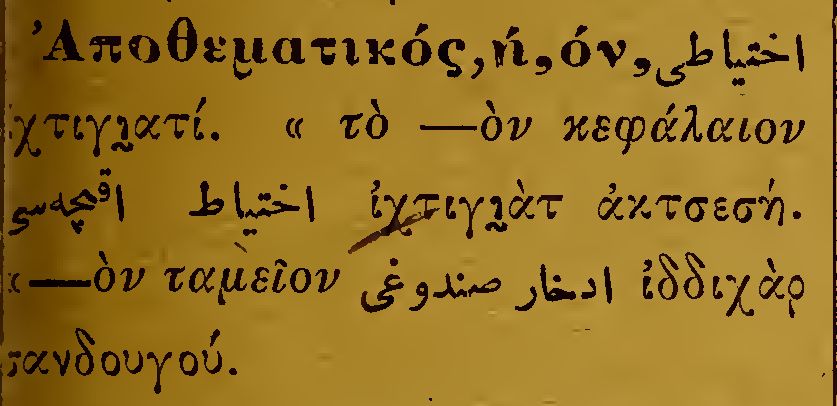 Ἀποθεματικός, ή, όν, اختیاطی
ἰχτιγιατί. « τὸ —ὸν κεφάλαιον
اختیاط اقچه‌سی ἰχτιγιὰτ ἀκτσεσή.
« —ὸν ταμεῖον ادخار صندوغی ἰδδιχὰρ
σανδουγού.